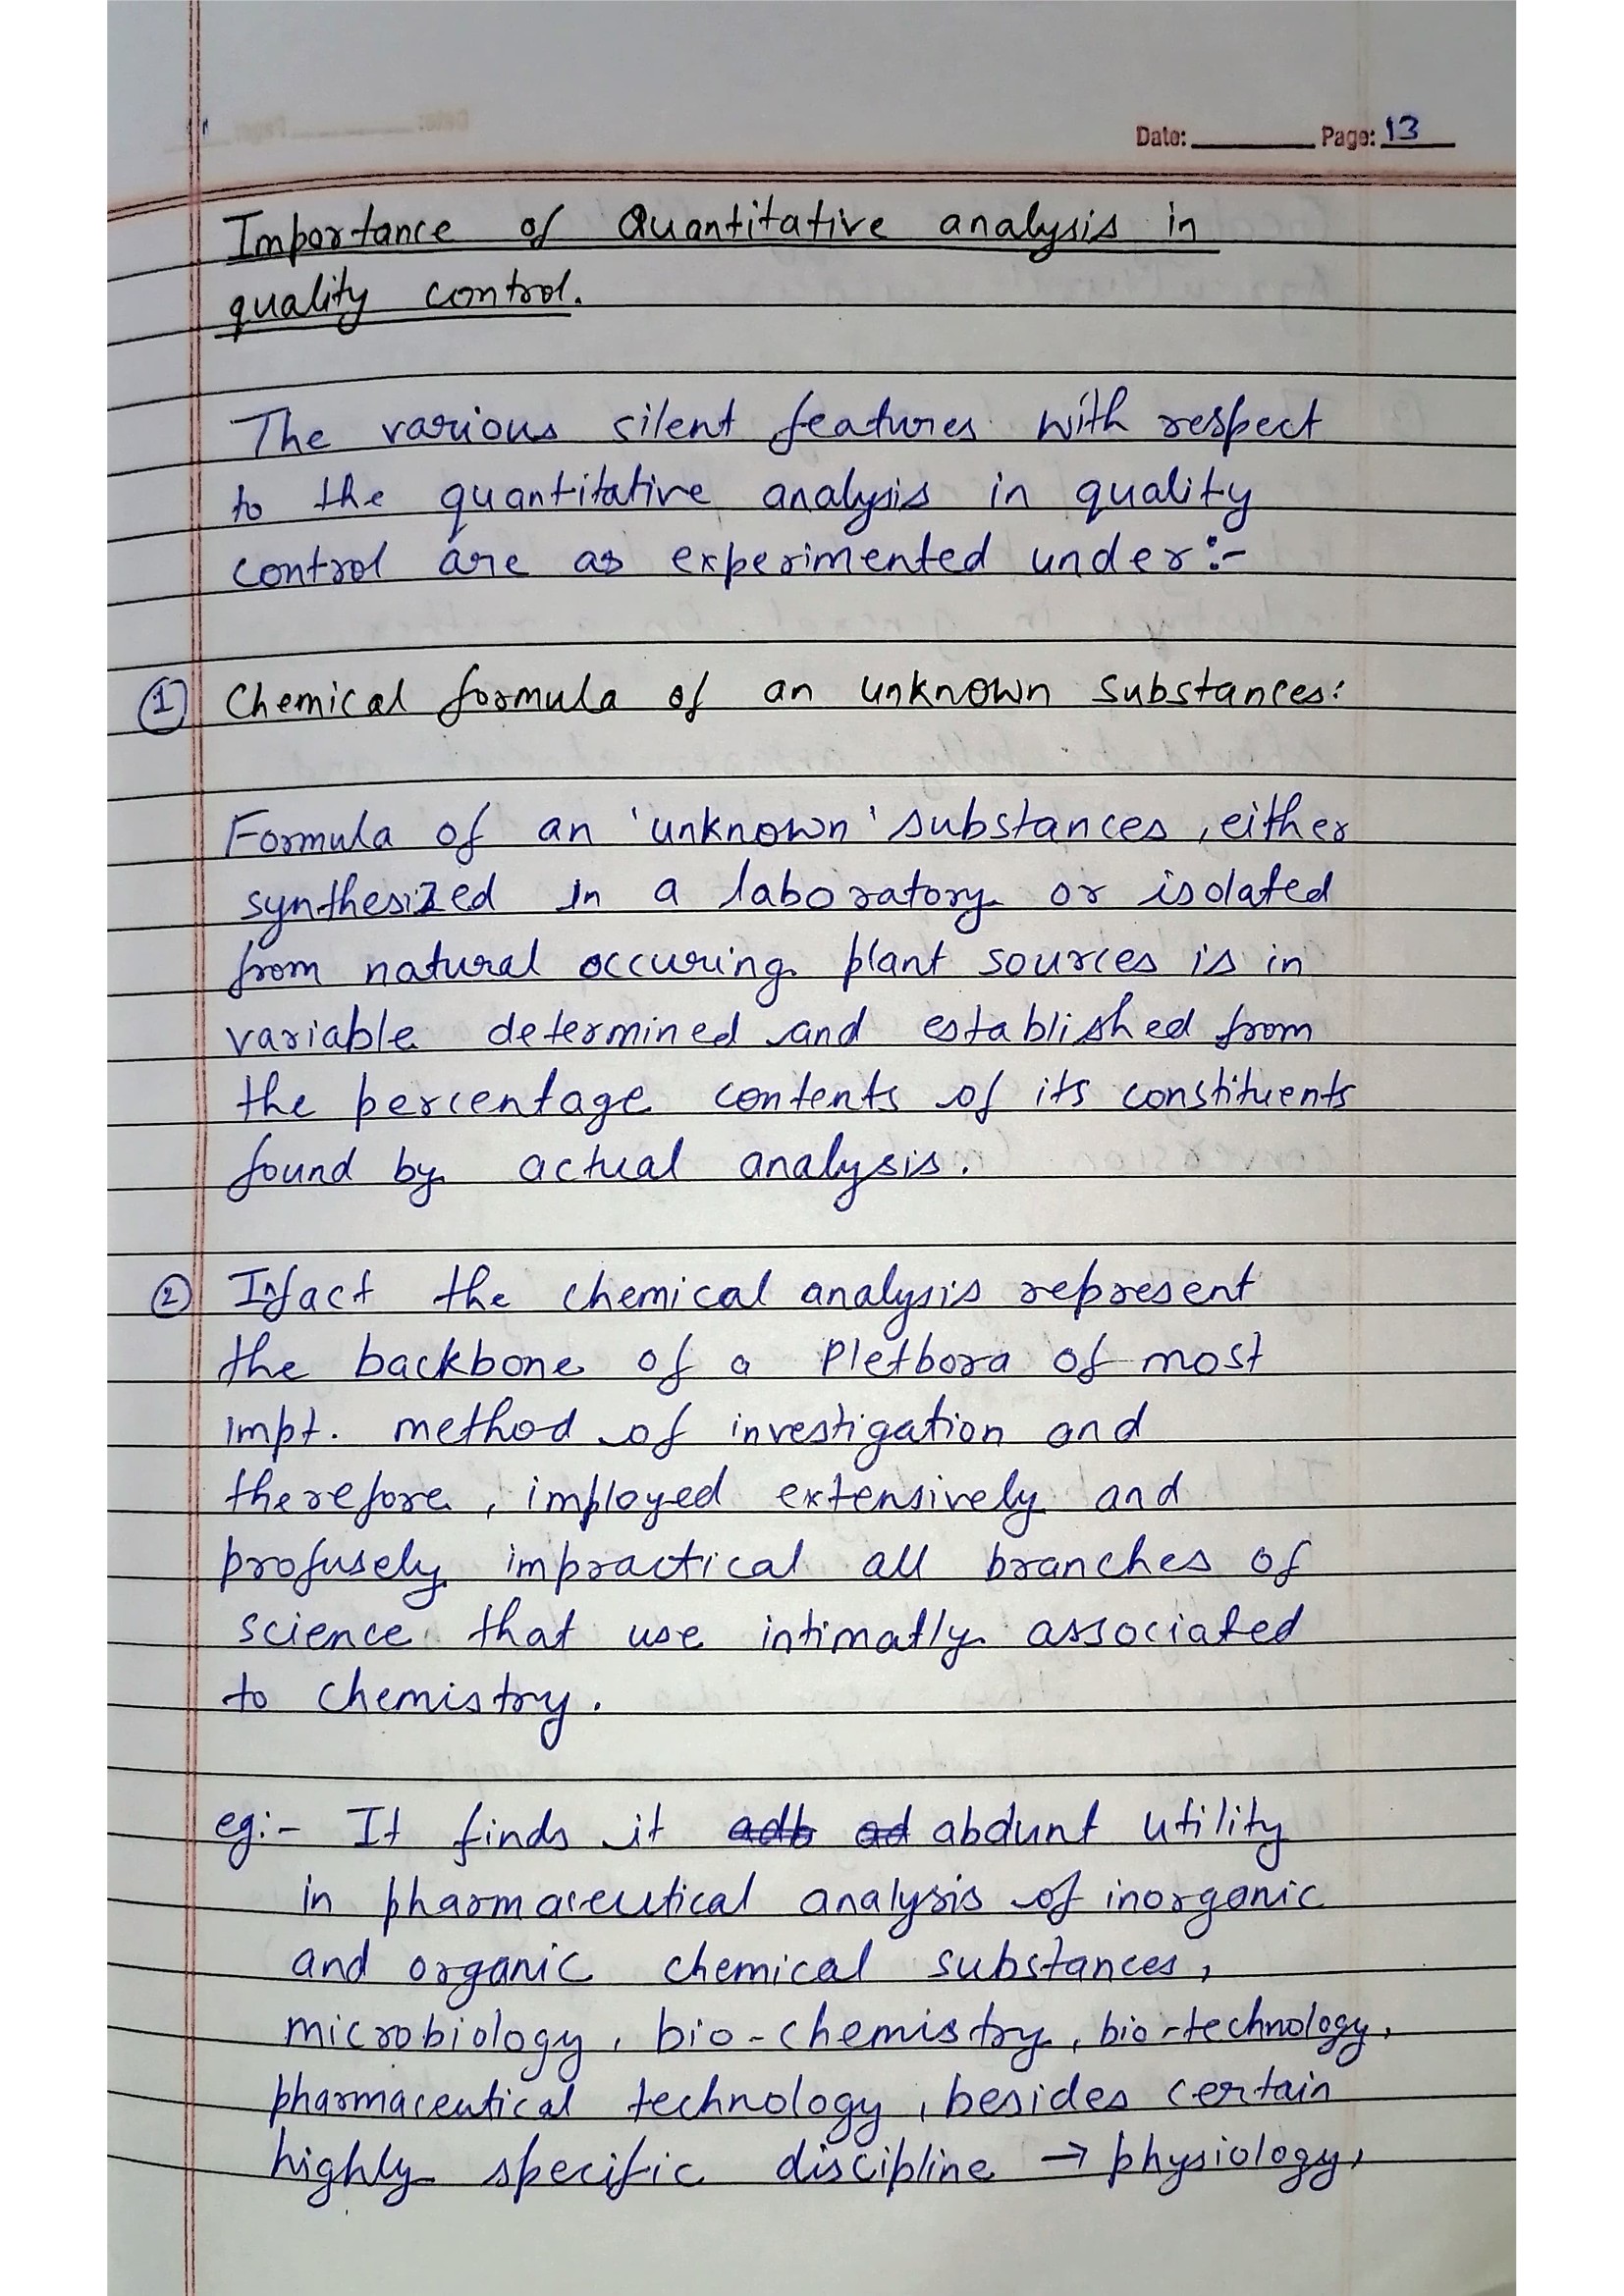 Date: Page: 13
Importance of Quantitative analysis in
quality control.
The various silent features with respect
to the quantitative analysis in quality
control are as experimented under:-
① Chemical formula of an unknown substances:
Formula of an 'unknown' substances, either
synthesized in a laboratory or isolated
from natural occuring plant sources is in
variable determined and established from
the percentage contents of its constituents
found by actual analysis.
② Infact the chemical analysis represent
the backbone of a Pletbora of most
impt. method of investigation and
therefore, imployed extensively and
profusely impractical all branches of
science that use intimatly associated
to chemistry.
eg:- It finds it adb ad abdunt utility
in pharmaceutical analysis of inorganic
and organic chemical substances,
microbiology, bio-chemistry, bio-technology,
pharmaceutical technology, besides certain
highly specific discipline → physiology,